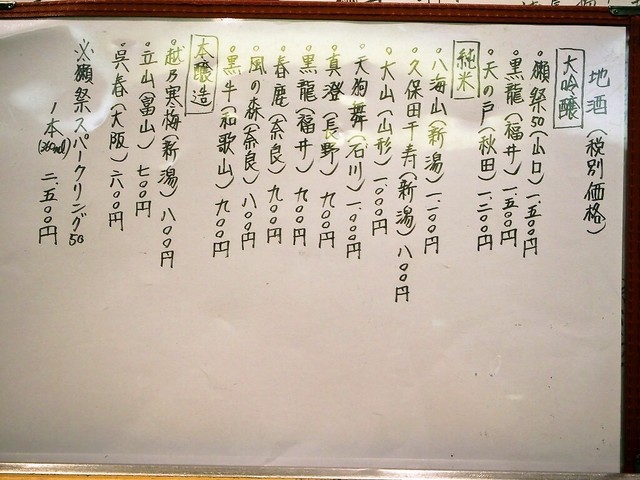 地酒(税別価格)
大吟醸
・獺祭50(山口)一、五〇〇円
・黒龍(福井)一、五〇〇円
・天の戸(秋田)一、二〇〇円
純米
・八海山(新潟)一、二〇〇円
・久保田千寿(新潟)八〇〇円
・大山(山形)一、〇〇〇円
・天狗舞(石川)一、〇〇〇円
・真澄(長野)九〇〇円
・黒龍(福井)九〇〇円
・春鹿(奈良)九〇〇円
・風の森(奈良)八〇〇円
・黒牛(和歌山)九〇〇円
本醸造
・越乃寒梅(新潟)八〇〇円
・立山(富山)七〇〇円
・呉春(大阪)六〇〇円
※獺祭スパークリング50
1本(360ml)二、五〇〇円